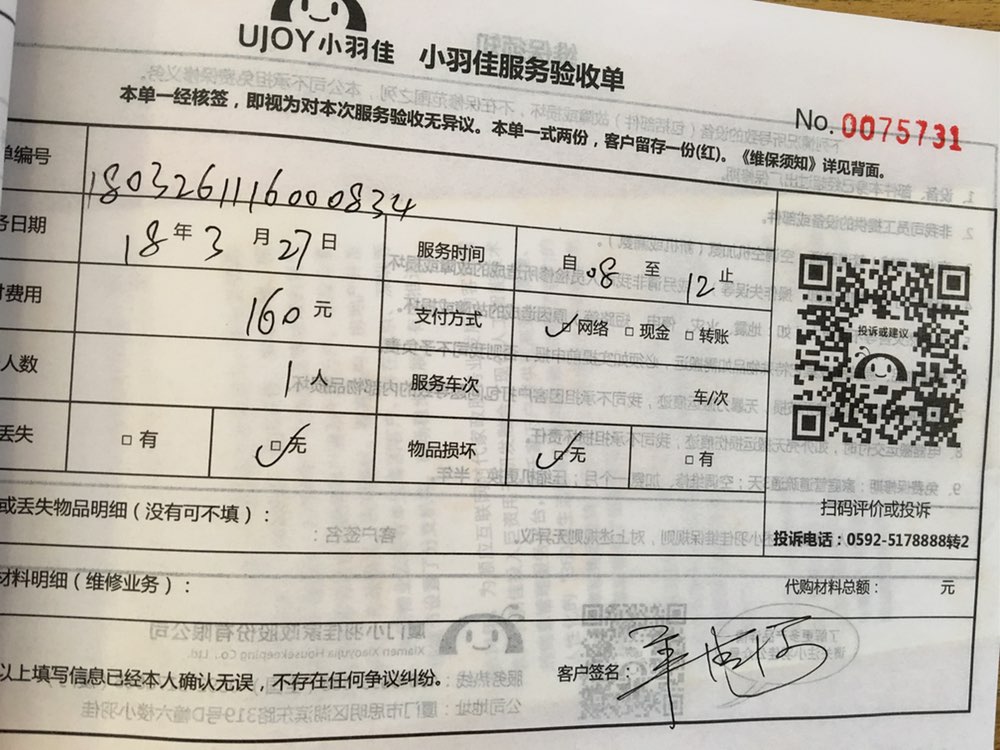 UJOY小羽佳 小羽佳服务验收单
本单一经核签，即视为对本次服务验收无异议。本单一式两份，客户留存一份(红)。《维保须知》详见背面。
No. 0075731
单编号 1803261116000834
务日期 18年3月27日 服务时间 自08至12止
付费用 160元 支付方式 ☑网络 □现金 □转账
人数 1人 服务车次 车/次
丢失 □有 ☑无 物品损坏 ☑无 □有
投诉或建议
扫码评价或投诉
投诉电话：0592-5178888转2
或丢失物品明细（没有可不填）：
材料明细（维修业务）： 代购材料总额： 元
以上填写信息已经本人确认无误，不存在任何争议纠纷。 客户签名：